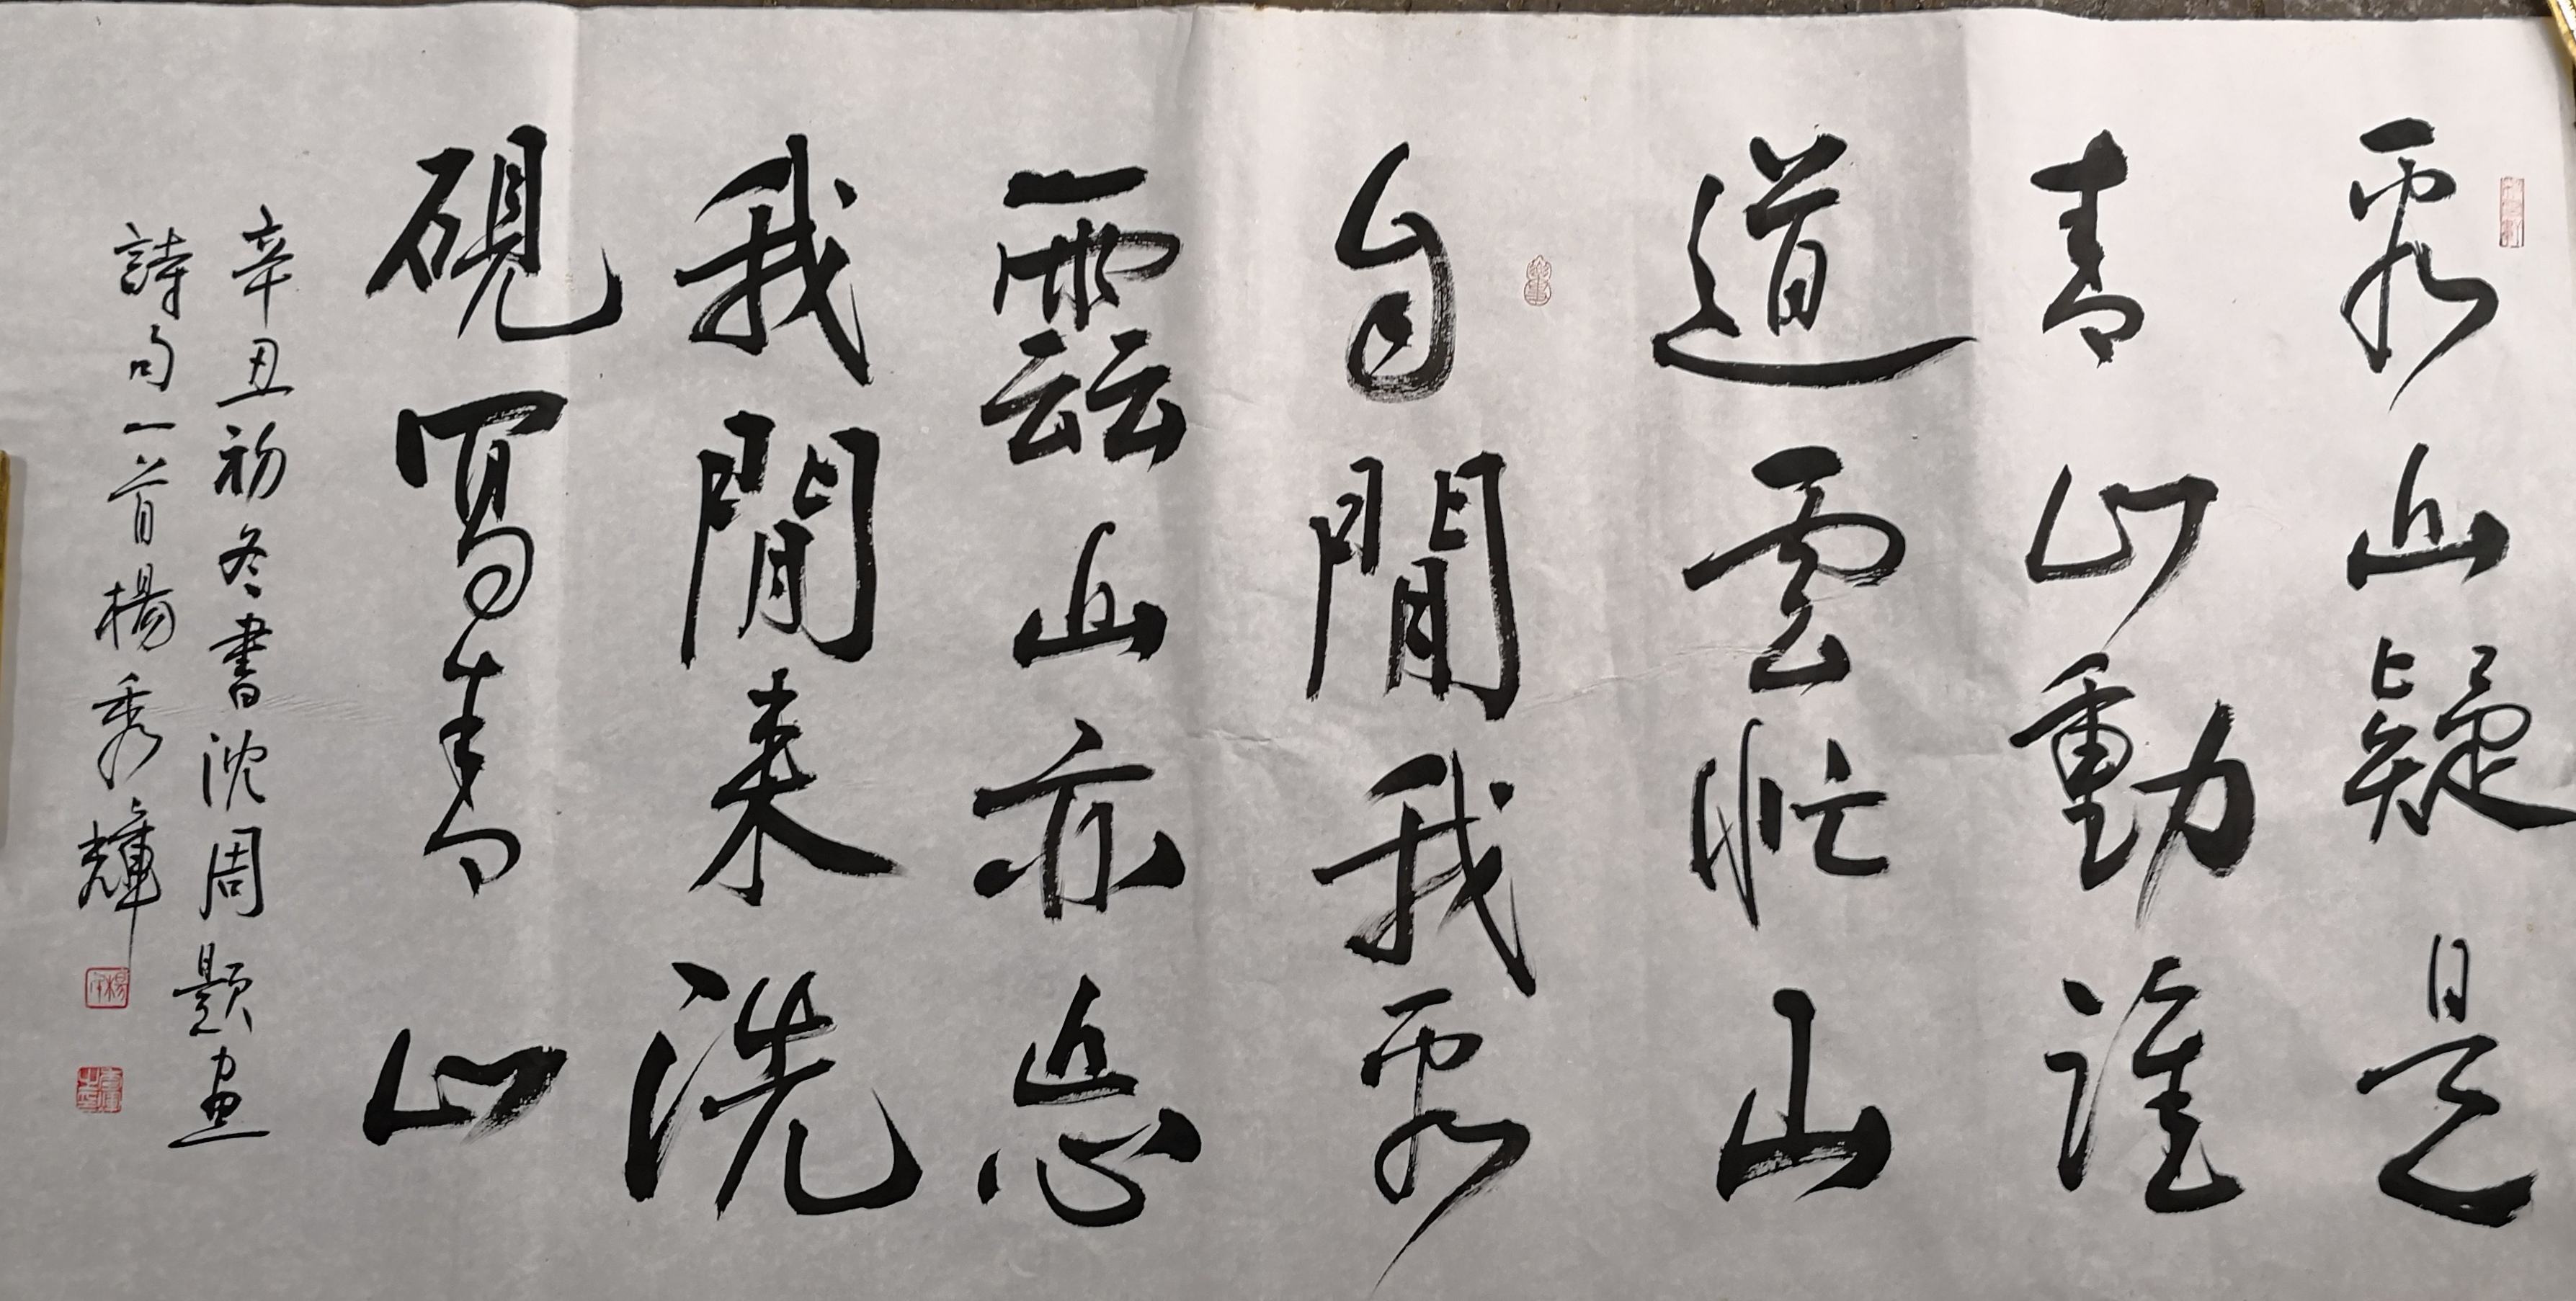 看山疑是
青山動誰
道雲忙山
自閒我看
雲山亦忘
我閒来洗
硯寫青山
辛丑初冬書沈周題画
詩句一首楊秀輝